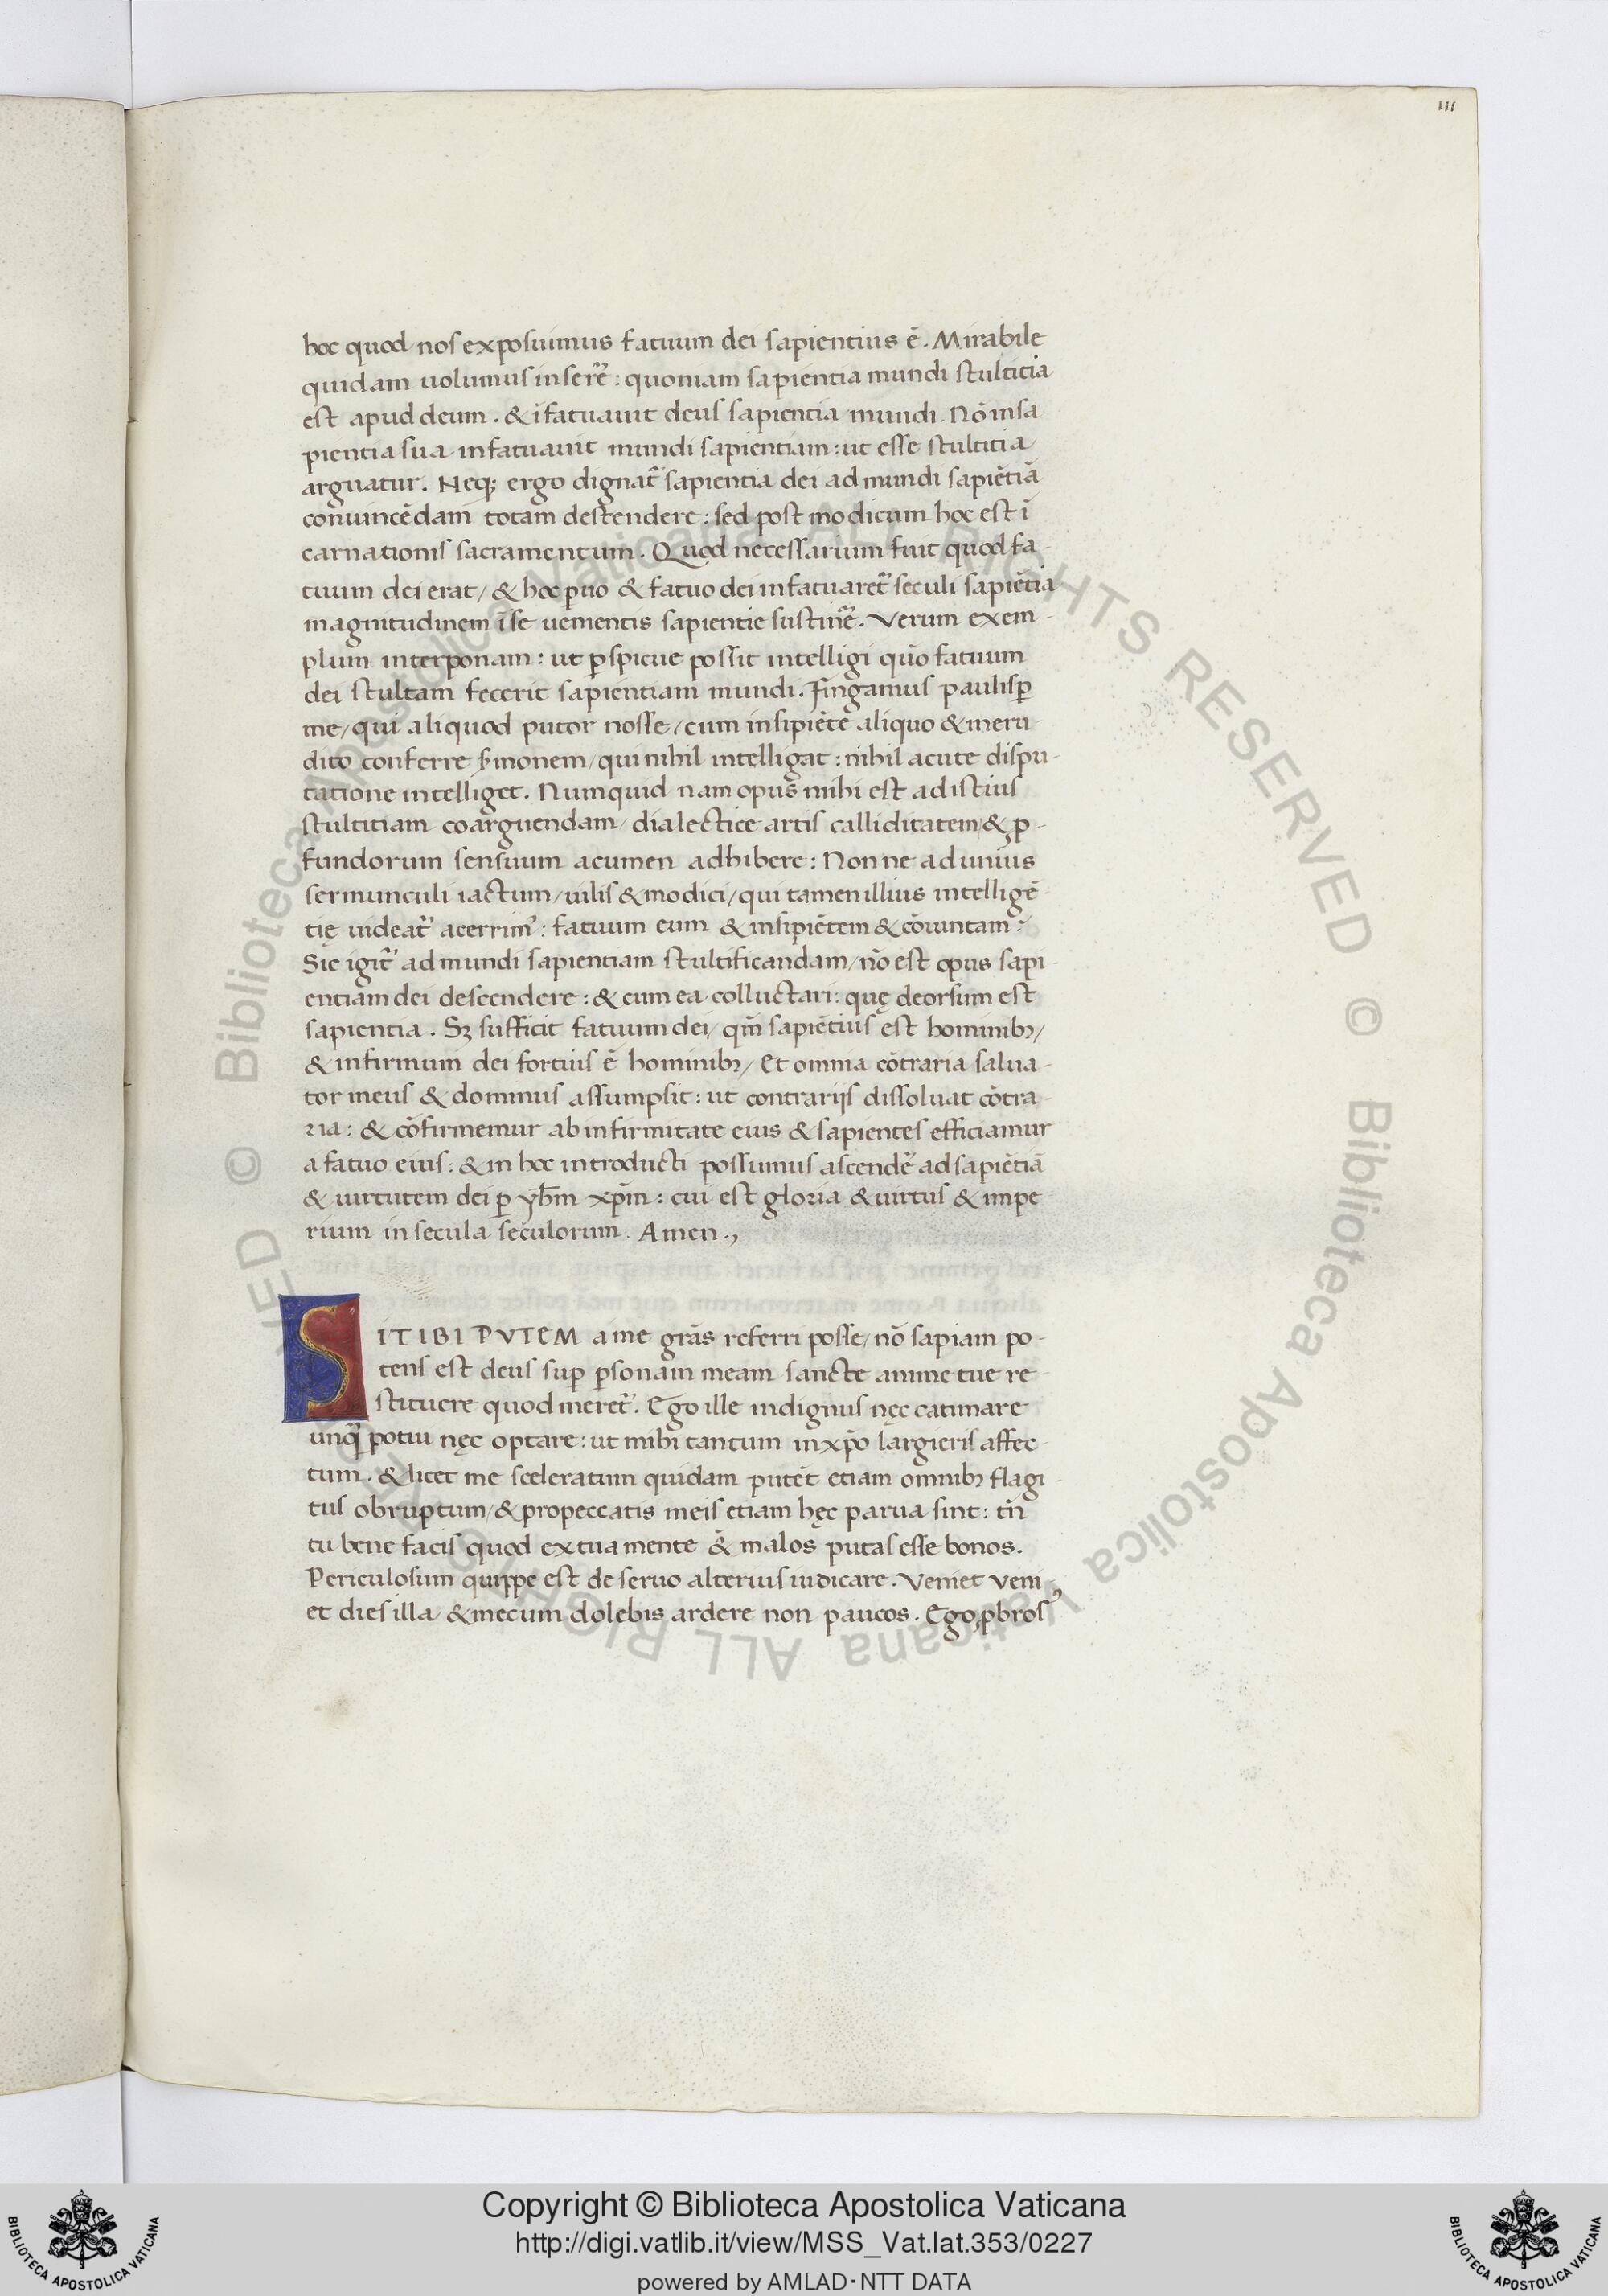 111
hoc quod nos exposuimus fatuum dei sapientius ē. Mirabile
quidam uolumus inserēr̄: quoniam sapientia mundi stulticia
est apud deum. & īfatuauit deus sapientia mundi. Nō insa
pientia sua infatuauit mundi sapientiam: ut esse stultitia
arguatur. Neq; ergo dignat᷑ sapientia dei ad mundi sapiētiā
conuincēdam totam destendere: sed post modicum hoc est ī
carnationis sacramentum. Quod necessarium fuit quod fa-
tuum dei erat/ & hoc ꝑuo & fatuo dei infatuaret᷑ seculi sapiētia
magnitudinem ī se uementis sapientie sustinēr̄. Verum exem-
plum interponam: ut ꝑspicue possit intelligi quō fatuum
dei stultam fecerit sapientiam mundi. Fingamus paulisꝑ
me/ qui aliquod putor nosse/ cum insipiētē aliquo & ineru-
dito conferre s̄monem/ qui nihil intelligat: nihil acute dispu-
tatione intelliget. Numquid nam opus mihi est ad istius
stultitiam coarguendam/ dialectice artis calliditatem/ & ꝓ-
fundorum sensuum acumen adhibere: Nonne ad unius
sermunculi iactum/ uilis & modici/ qui tamen illius intelligē-
tię uideat᷑ acerrim᷒: fatuum eum & insipiētem & cōiuntam:
Sic igit᷑ ad mundi sapientiam stultificandam/ nō est opus sapi-
entiam dei descendere: & cum ea colluctari: quę deorsum est
sapientia. Sꝫ sufficit fatuum dei/ qm̄ sapiētius est hominibꝫ/
& infirmum dei fortius ē hominibꝫ/ Et omnia cōtraria salua-
tor meus & dominus assumpsit: ut contrarijs dissoluat cōtra-
ria: & cōfirmemur ab infirmitate eius & sapientes efficiamur
a fatuo eius: & in hoc introducti possumus ascendēr̄ ad sapiētiā
& uirtutem dei ꝑ yh̄m xp̄m: cui est gloria & uirtus & impe
rium in secula seculorum. Amen.,
SI TIBI PVTEM a me grās referri posse/ nō sapiam po-
tens est deus suꝑ ꝑsonam meam sancte anime tue re-
stituere quod meret᷑. Ego ille indignus nęc catinare
unq̄ potui nęc optare: ut mihi tantum in xp̄o largieris affec-
tum. & licet me sceleratum quidam putēt etiam omnibꝫ flagi-
tus obruptum/ & pro peccatis meis etiam hęc parua sint: tn̄
tu bene facis quod ex tua mente & malos putas esse bonos.
Periculosum quippe est de seruo alterius iudicare. Veniet veni
et dies illa & mecum dolebis ardere non paucos. Ego ꝓbros᷒
Copyright © Biblioteca Apostolica Vaticana
http://digi.vatlib.it/view/MSS_Vat.lat.353/0227
powered by AMLAD·NTT DATA
BIBLIOTECA APOSTOLICA VATICANA
BIBLIOTECA APOSTOLICA VATICANA
© Biblioteca Apostolica Vaticana ALL RIGHTS RESERVED © Biblioteca Apostolica Vaticana ALL RIGHTS RESERVED